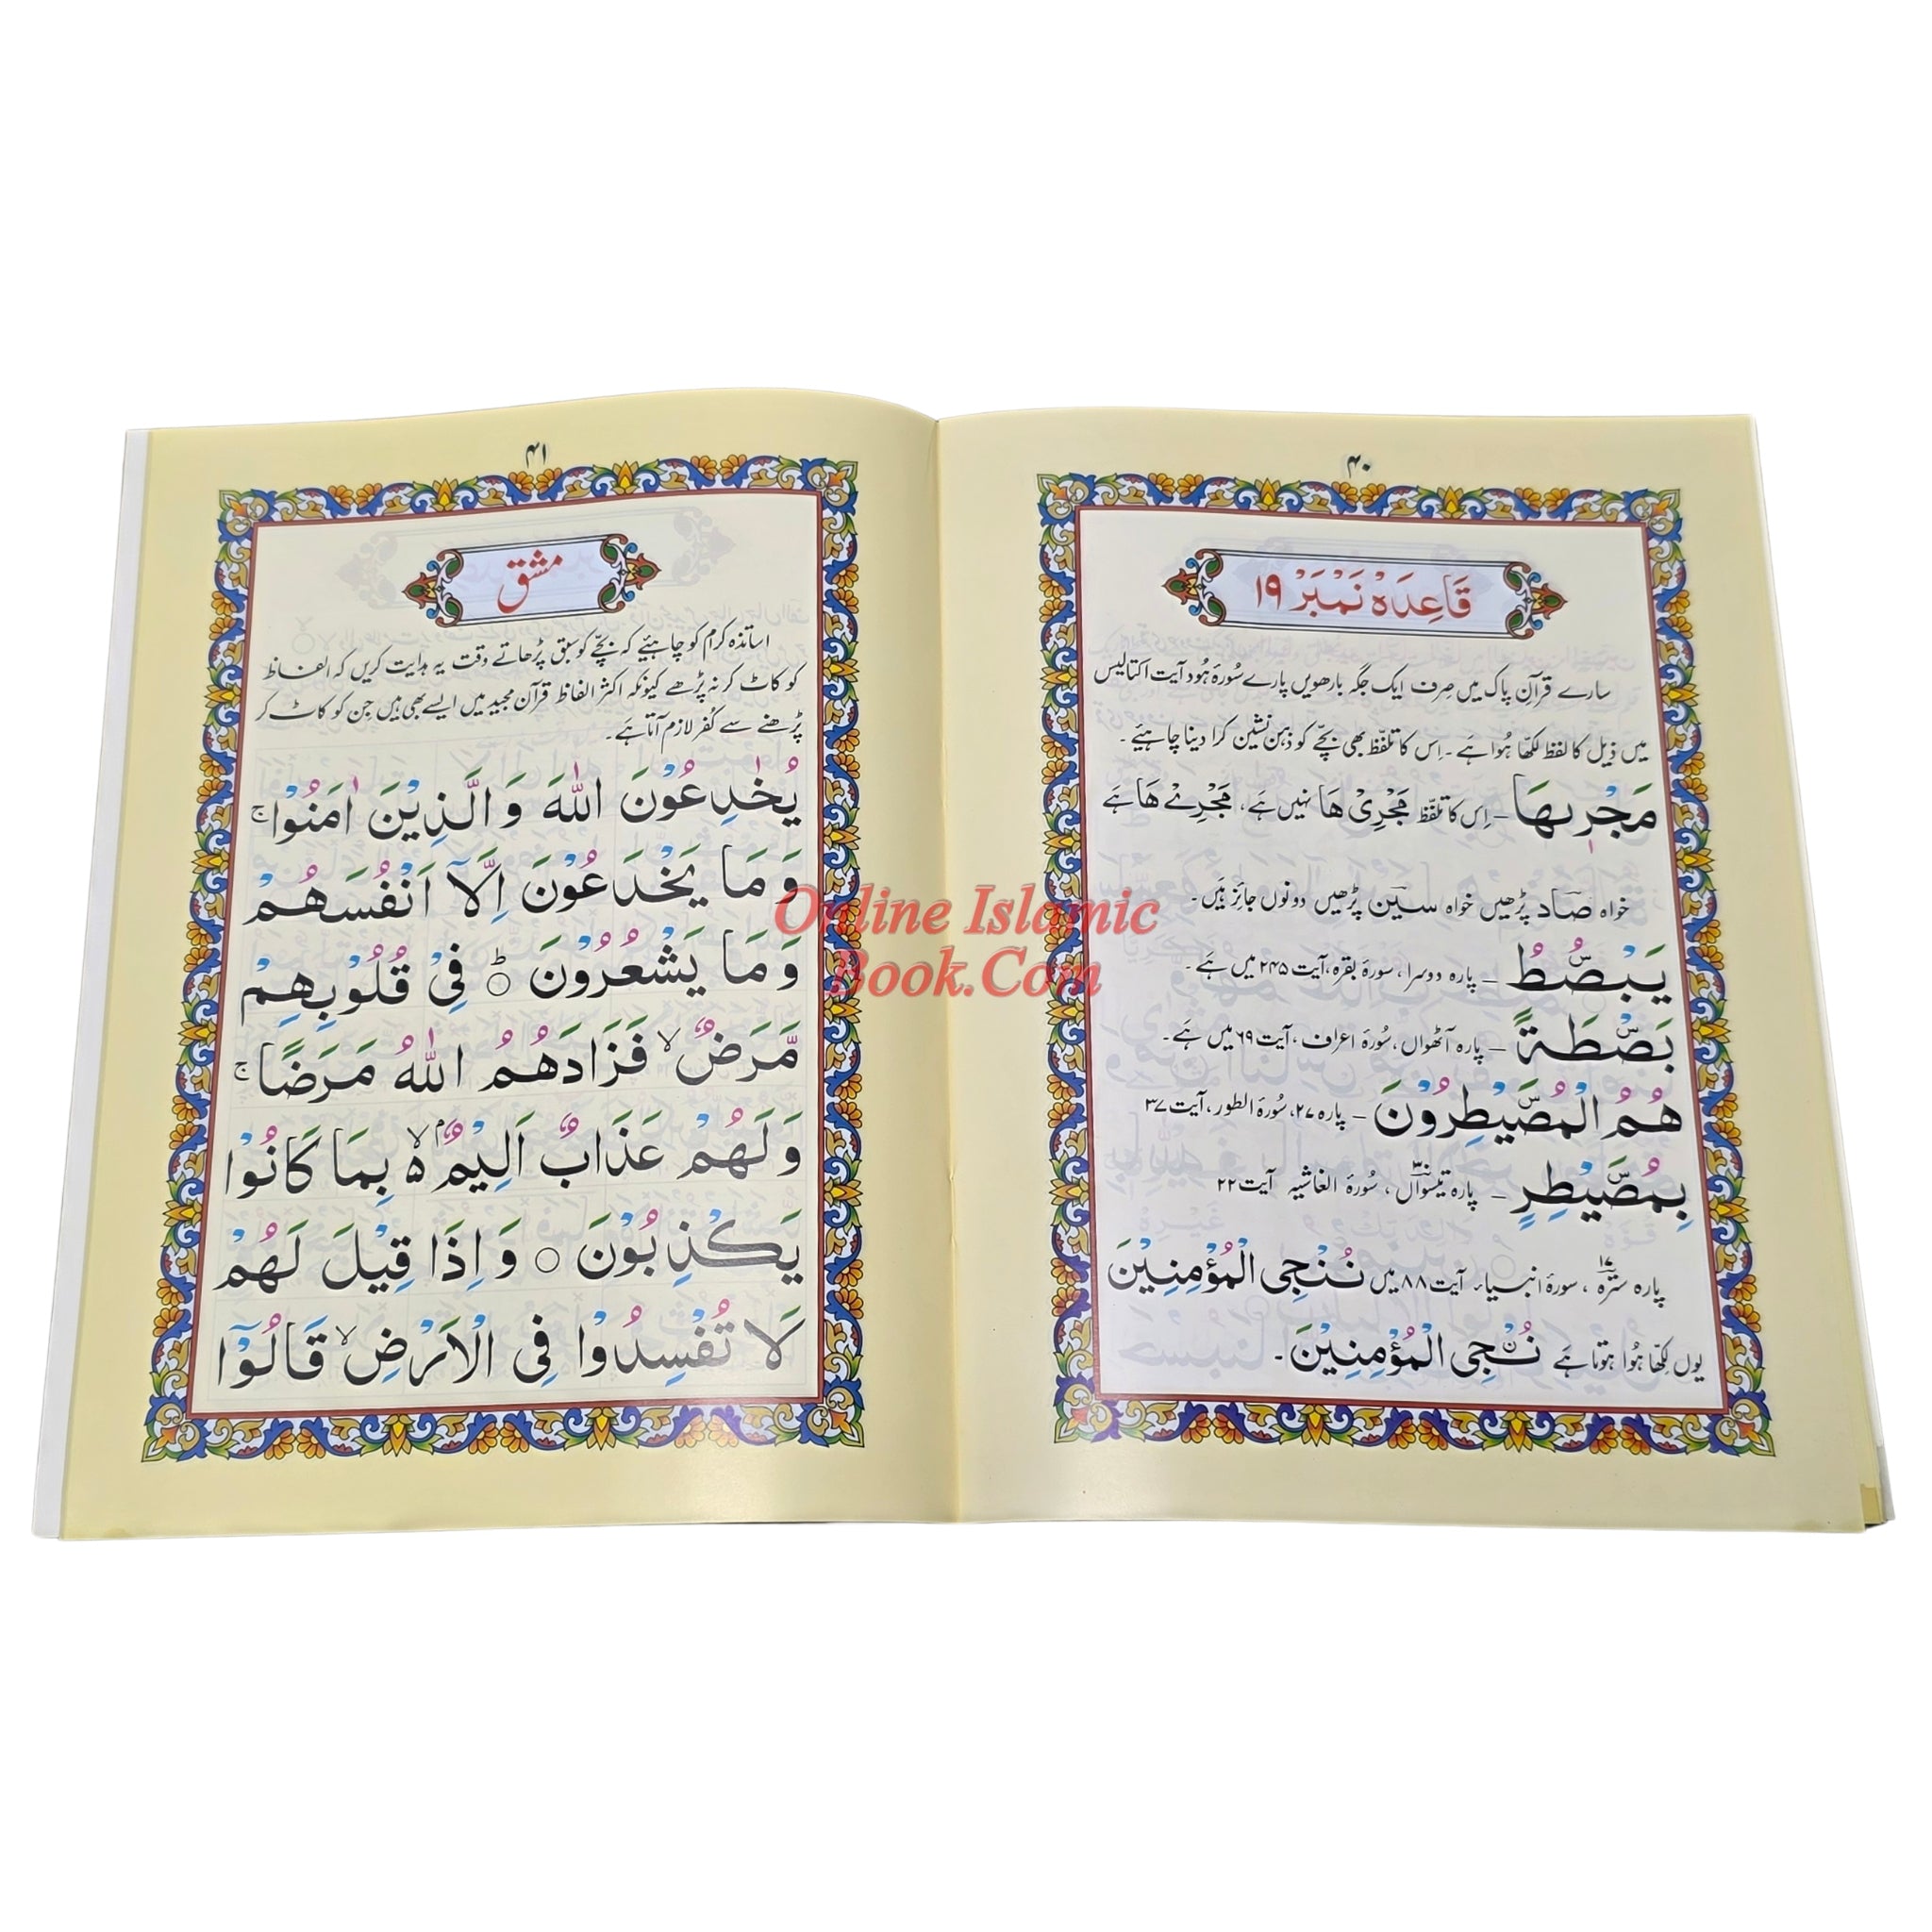 ۴۰
قَاعِدَہْ نَمْبَرْ ۱۹
سارے قرآنِ پاک میں صِرف ایک جگہ بارھویں پارے سُورۂ ہُود آیت اکتالیس
میں ذیل کا لفظ لکھّا ہُوا ہَے ۔ اِس کا تلفّظ بھی بچّے کو ذہن نشین کرا دینا چاہیئے ۔
مَجْرٖىهَا – اِس کا تلفّظ مَجْرِیْ هَا نہیں ہَے ، مَجْرِے هَا ہَے
خواہ صٓاد پڑھیں خواہ سٓین پڑھیں دونوں جائز ہیں ۔
يَبْصُۜطُ – پارہ دوسرا ، سورۂ بقرہ ، آیت ۲۴۵ میں ہَے ۔
بَصْۜطَةً – پارہ آٹھواں ، سُورۂ اعراف ، آیت ۶۹ میں ہَے ۔
هُمُ الْمُصَۜيْطِرُوْنَ – پارہ ۲۷، سُورۂ الطور ، آیت ۳۷
بِمُصَۜيْطِرٍ – پارہ تیسواں ۳۰ ، سُورۂ الغاشیہ آیت ۲۲
پارہ سترہ ۱۷ ، سورۂ انبیاء آیت ۸۸ میں نُنْجِی الْمُؤْمِنِيْنَ
یوں لِکھّا ہُوا ہوتا ہَے نُـنْجِی الْمُؤْمِنِيْنَ ۔
۴۱
مشق
اساتذہ کرام کو چاہیئے کہ بچّے کو سبق پڑھاتے وقت یہ ہدایت کریں کہ الفاظ
کو کاٹ کر نہ پڑھے کیونکہ اکثر الفاظ قرآن مجید میں ایسے بھی ہیں جِن کو کاٹ کر
پڑھنے سے کُفر لازم آتا ہَے ۔
يُخٰدِعُوْنَ اللّٰهَ وَالَّذِيْنَ اٰمَنُوْا ۚ
وَمَا يَخْدَعُوْنَ اِلَّآ اَنْفُسَهُمْ
وَمَا يَشْعُرُوْنَ ؕ○ فِیْ قُلُوْبِهِمْ
مَّرَضٌ ۙ فَزَادَهُمُ اللّٰهُ مَرَضًا ۚ
وَلَهُمْ عَذَابٌ اَلِيْمٌۢ ۙ۵ بِمَا كَانُوْا
يَكْذِبُوْنَ ○ وَاِذَا قِيْلَ لَهُمْ
لَا تُفْسِدُوْا فِی الْاَرْضِ ۙ قَالُوْٓا
Online Islamic
Book.Com